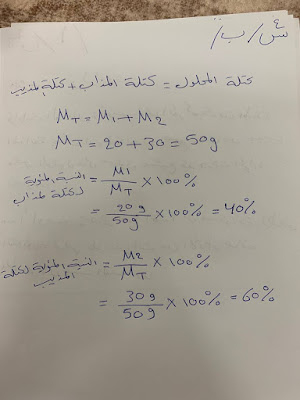 س٤/ب/
كتلة المحلول = كتلة المذاب + كتلة لمذيب
MT = M1 + M2
MT = 20 + 30 = 50g
النسبة المئوية لكتلة لمذاب = M1/MT × 100%
= 20g/50g × 100% = 40%
النسبة المئوية لكتلة المذيب = M2/MT × 100%
= 30g/50g × 100% = 60%